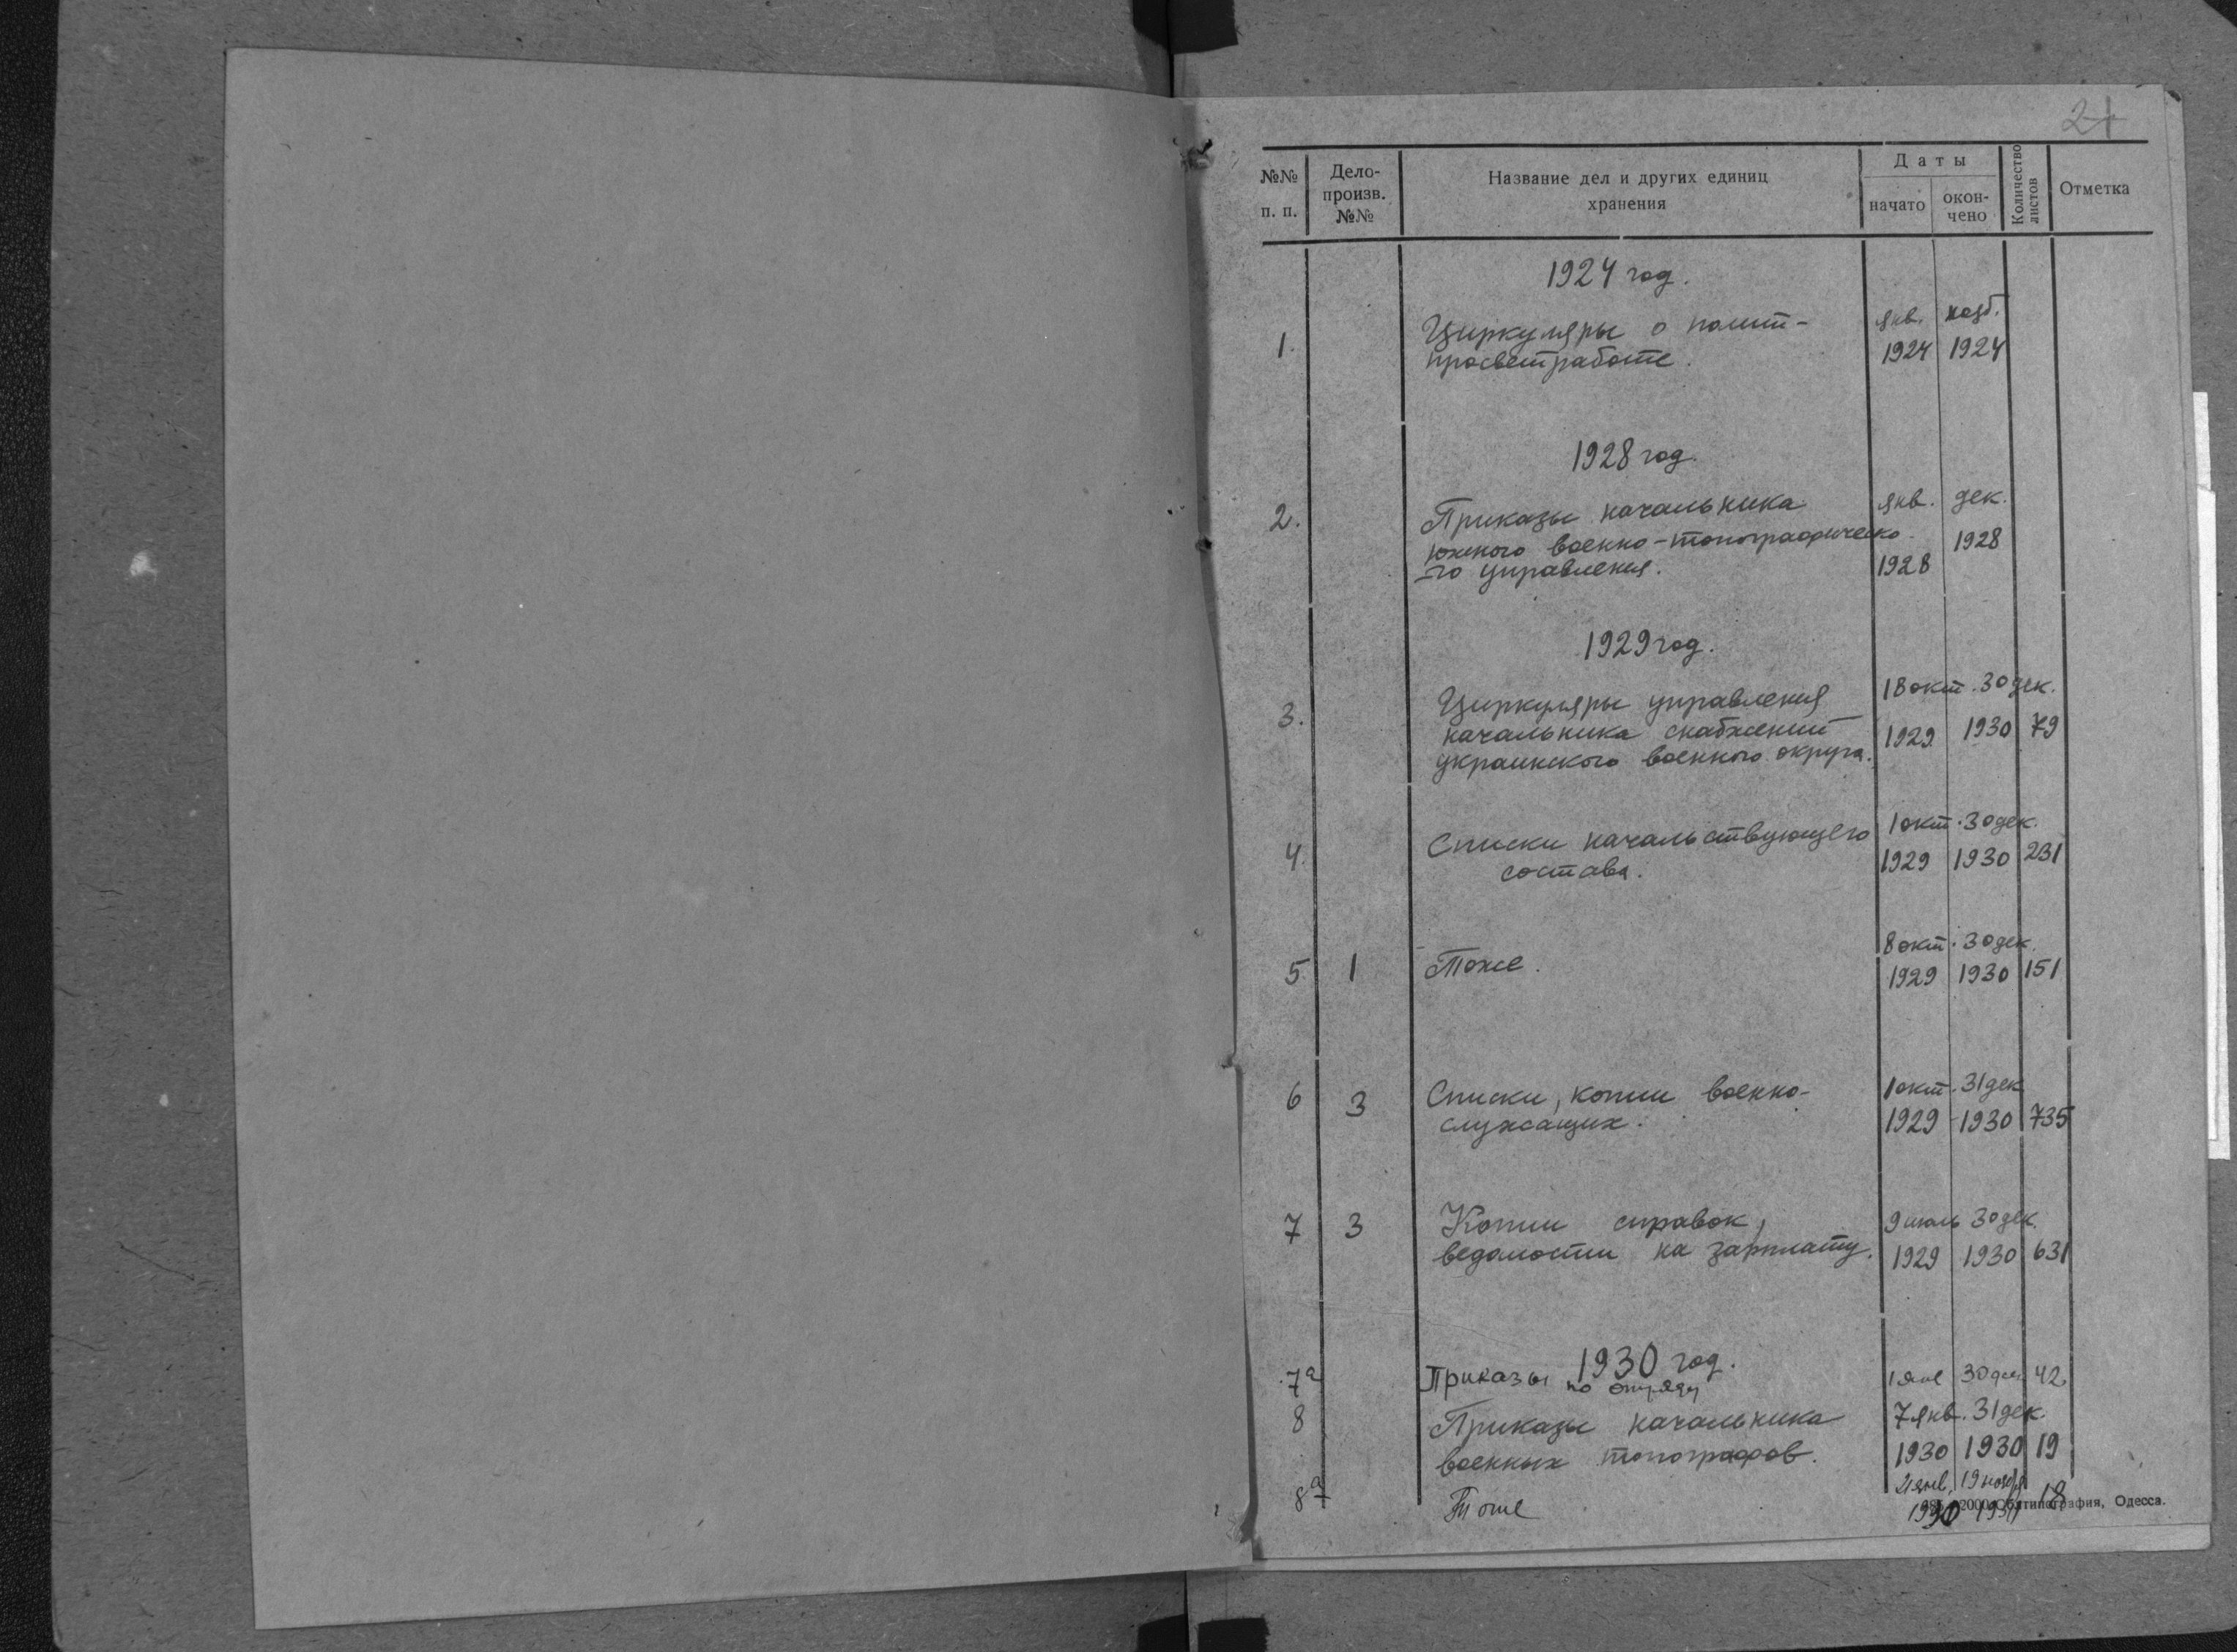 21
№№ п. п.
Дело-
произв.
№№
Название дел и других единиц
хранения
Даты
начато
окон-
чено
Количество
листов
Отметка
1924 год.
1. Циркуляры о полит- янв. нояб.
просветработе. 1924 1924
1928 год.
2. Приказы начальника янв. дек.
южного военно-топографическо- 1928
-го управления. 1928
1929 год.
3. Циркуляры управления 18 окт. 30 дек.
начальника снабжений 1929 1930 79
украинского военного округа.
4. Списки начальствующего 1 окт. 30 дек.
состава. 1929 1930 231
8 окт. 30 дек.
5 1 Тоже. 1929 1930 151
6 3 Списки, копии военно- 1 окт. 31 дек
служащих. 1929 1930 735
7 3 Копии справок, 9 июль 30 дек.
ведомости на зарплату. 1929 1930 631
1930 год.
7а Приказы по отряду 1 янв 30 дек 42
8 Приказы начальника 7 янв. 31 дек.
военных топографов. 1930 1930 19
8а Тоже 21 янв. 19 нояб 18
1930
2000 Облтипография, Одесса.